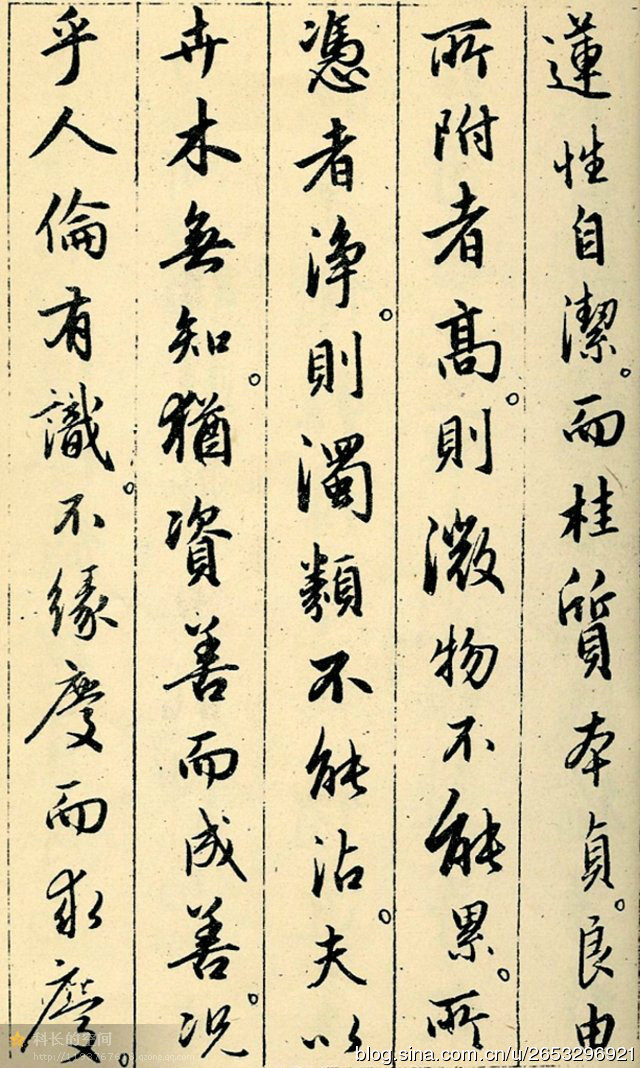 蓮性自潔。而桂質本貞。良由
所附者高。則微物不能累。所
憑者淨。則濁類不能沾。夫以
卉木無知。猶資善而成善。況
乎人倫有識。不緣慶而求慶。
科长的空间
blog.sina.com.cn/u/2653296921